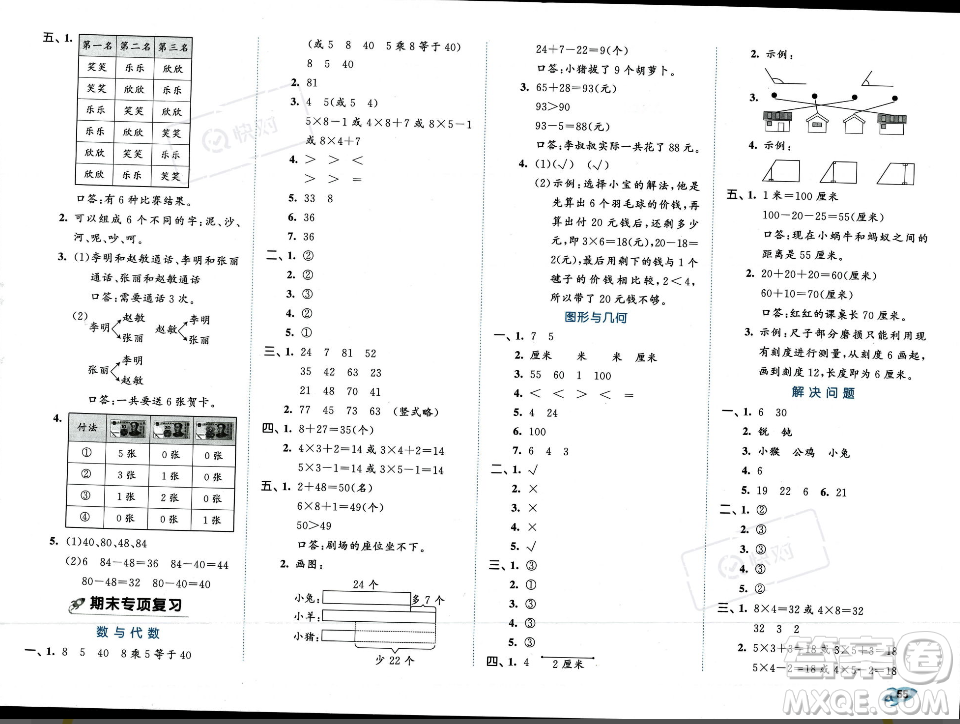 五、1.
第一名 第二名 第三名
笑笑 乐乐 欣欣
笑笑 欣欣 乐乐
乐乐 笑笑 欣欣
乐乐 欣欣 笑笑
欣欣 笑笑 乐乐
欣欣 乐乐 笑笑
口答:有 6 种比赛结果。
2. 可以组成 6 个不同的字:泥、沙、
河、呢、吵、呵。
3. (1)李明和赵敏通话、李明和张丽
通话、张丽和赵敏通话
口答:需要通话 3 次。
(2)
李明 赵敏 张丽
赵敏 李明 张丽
张丽 李明 赵敏
口答:一共要送 6 张贺卡。
4.
付法
① 5 张 0 张 0 张
② 3 张 1 张 0 张
③ 1 张 2 张 0 张
④ 0 张 0 张 1 张
5. (1)40、80、48、84
(2)6 84-48=36 84-80=4
80-48=32 80-40=40
期末专项复习
数与代数
一、1. 8 5 40 8 乘 5 等于 40
(或 5 8 40 5 乘 8 等于 40)
8 5 40
2. 81
3. 4 5(或 5 4)
5×8-1 或 4×8+7 或 8×5-1
或 8×4+7
4. > > <
> > <
5. 33 8
6. 36
7. 36
二、1. ②
2. ①
3. ③
4. ③
5. ①
三、1. 24 7 81 52
35 42 64 38
21 48 50 63
2. 77 45 63 (竖式略)
四、1. 8+27=35(个)
2. 4×3+2=14 或 3×4+2=14
5×3-1=14 或 3×5-1=14
五、1. 2+48=50(名)
6×8+1=49(个)
50>49
口答:剧场的座位坐不下。
2. 画图:
24 个
小兔: 多 7 个
小羊:
小猪:
少 22 个
24+7-22=9(个)
口答:小猪拔了 9 个胡萝卜。
3. 65+28=93(元)
93>90
93-5=88(元)
口答:李叔叔实际一共花了 88 元。
4. (1)(√) (√)
(2)示例:选择小宝的解法,他是
先算出 6 个羽毛球的价钱,再
算出付 20 元钱后,还剩多少
元,即 3×6=18(元),20-18=
2(元),将剩下的钱与 1 个
毽子的价钱相比较,2<4,
所以带了 20 元钱不够。
图形与几何
一、1. 7 5
2. 厘米 米 米 厘米
3. 100 60 1 100
4. < < > < =
5. 4 24
6. 100
7. 6 4 3
二、1. √
2. ×
3. ×
4. ×
5. √
三、1. ③
2. ①
3. ③
4. ③
5. ③
四、1. 4 2 厘米
2. 示例:
3.
4. 示例:
五、1. 1 米=100 厘米
100-20-25=55(厘米)
口答:现在小蜗牛和蚂蚁之间的
距离是 55 厘米。
2. 20+20+20=60(厘米)
60+10=70(厘米)
口答:红红的课桌长 70 厘米。
3. 示例:尺子部分磨损只能利用现
有刻度进行测量,从刻度 6 画起,
画到刻度 12,长度是 6 厘米。
解决问题
一、1. 6 30
2. 锐 钝
3. 小猴 公鸡 小兔
4. 6
5. 19 22 6 6. 21
二、1. ②
2. ③
3. ③
4. ①
5. ②
三、1. 8×4=32 或 4×8=32
32 3 2
2. 5×3+3=18 或 3×5+3=18
5×4-2=18 或 4×5-2=18
55
快对
快对
答案卷
MXQE.COM